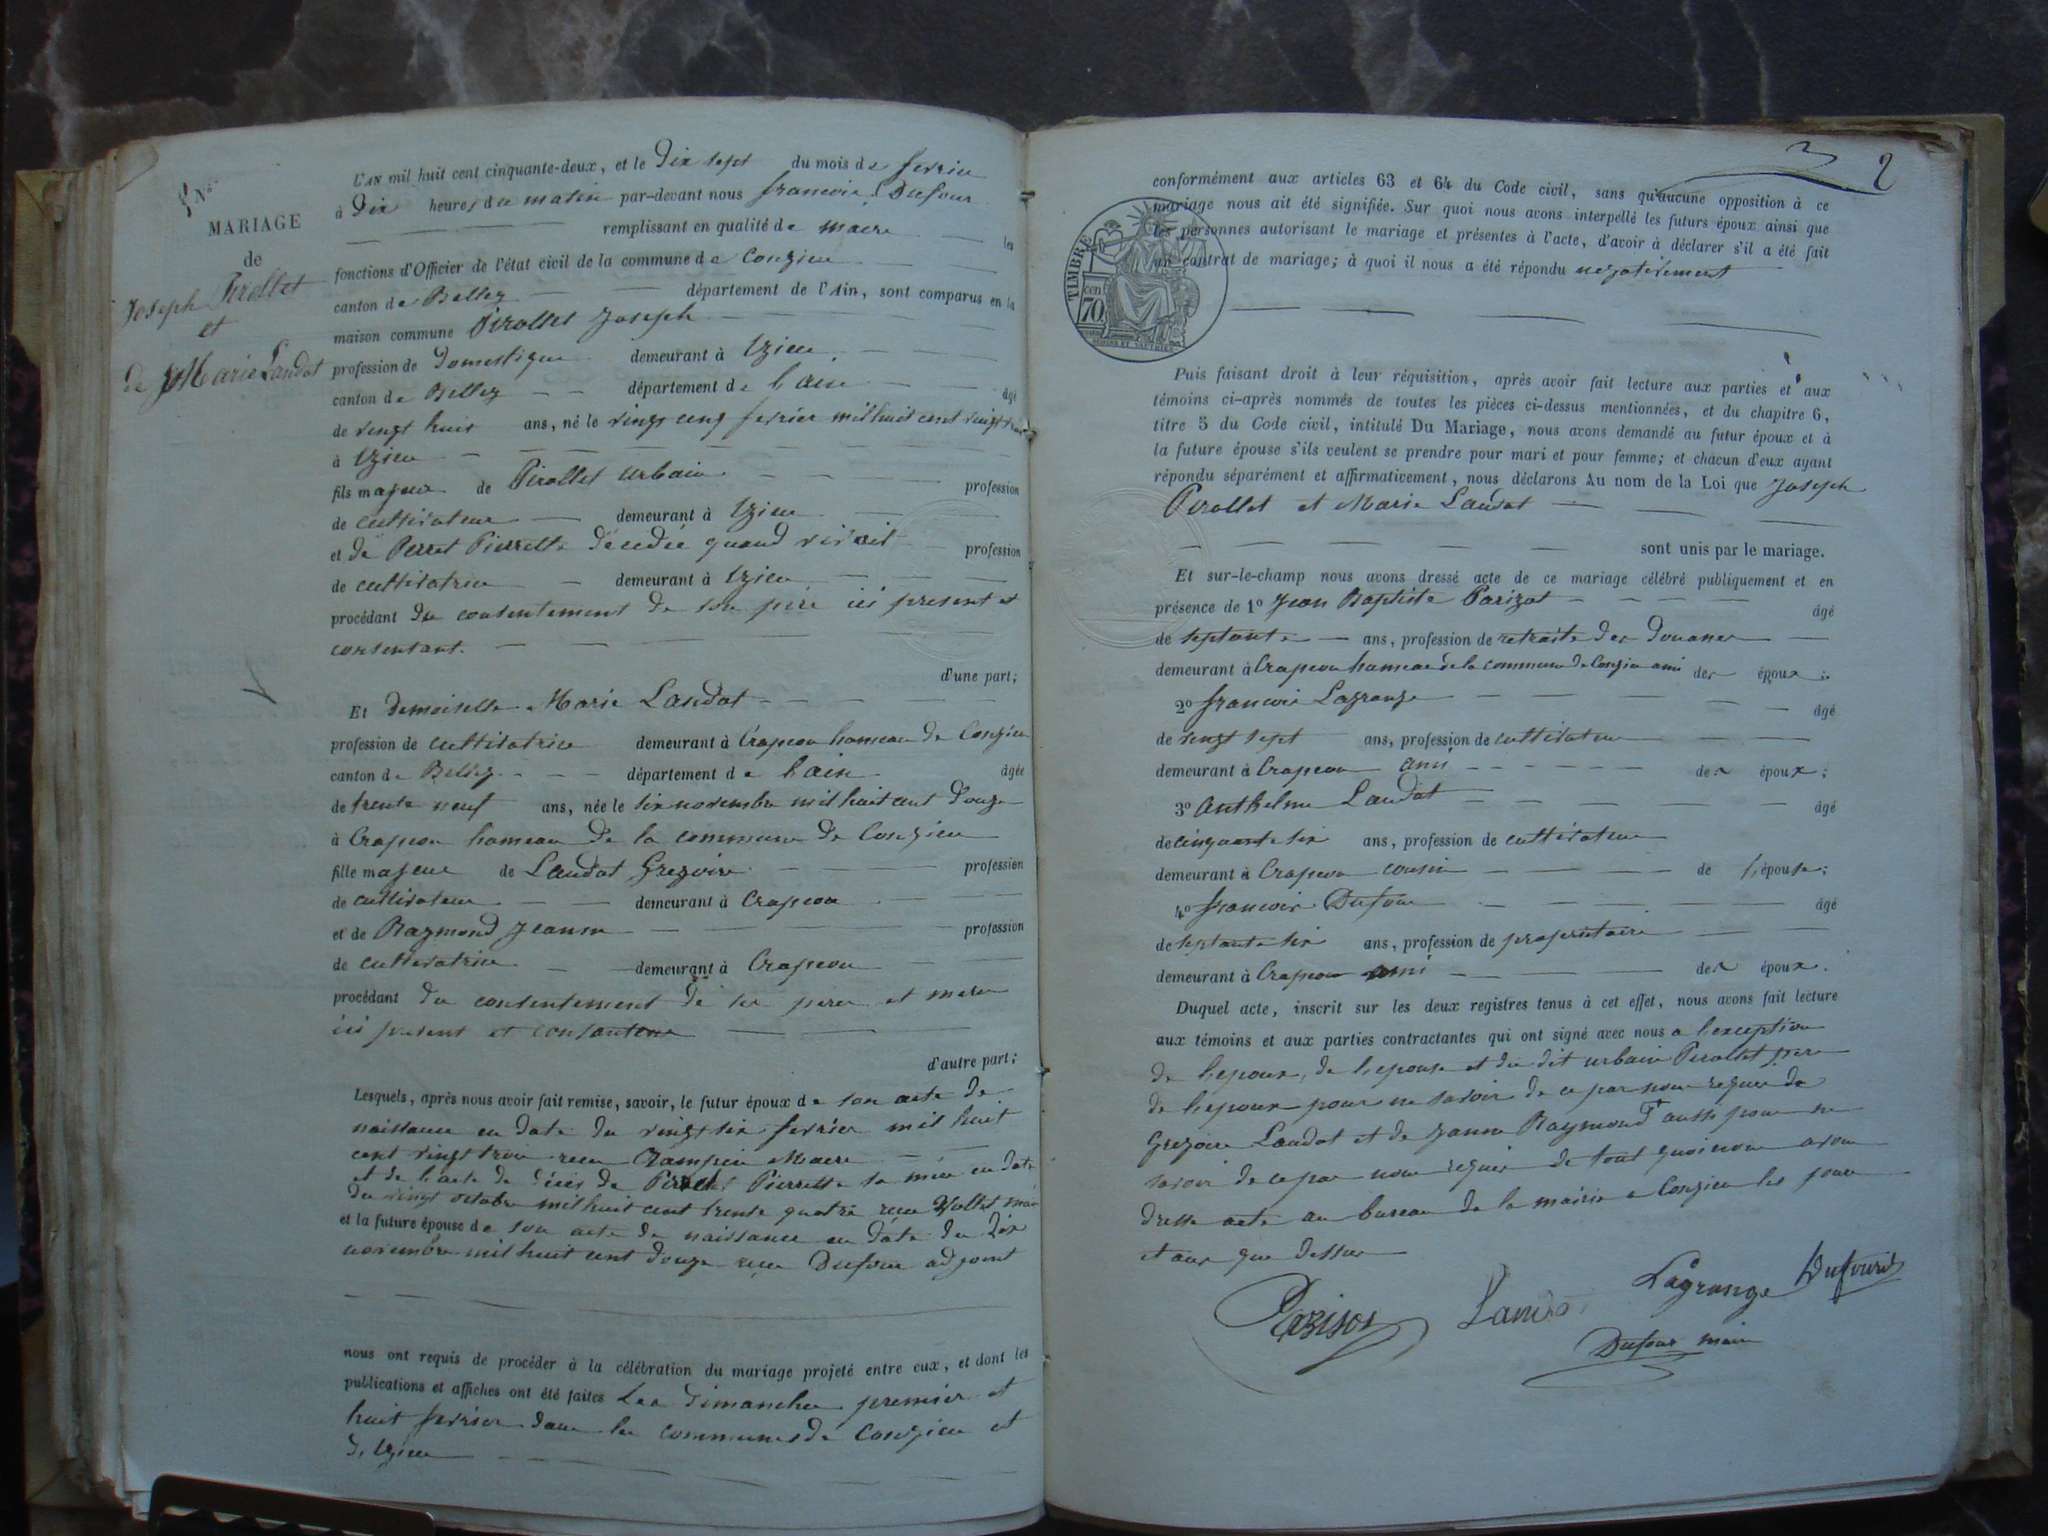 No
MARIAGE
de
Joseph Pirollet
et
de Marie Landot
L'AN mil huit cent cinquante-deux, et le dix sept du mois de fevrier
à dix heures du matin par-devant nous francois Dufour
remplissant en qualité de maire les
fonctions d'Officier de l'état civil de la commune de Conzieu
canton de Belley département de l'Ain, sont comparus en la
maison commune Pirollet Joseph
profession de domestique demeurant à Izieu
canton de Belley département de l'ain âgé
de vingt huit ans, né le vingt cinq fevrier mil huit cent vingt
à Izieu
fils majeur de Pirollet urbain profession
de cultivateur demeurant à Izieu
et de Perret Pierrette décédée quand vivait profession
de cultivatrice demeurant à Izieu
procédant du consentement de son père ici present et
consentant.
d'une part;
Et demoiselle Marie Landot
profession de cultivatrice demeurant à Crapeou hameau de Conzieu
canton de Belley département de l'ain âgée
de trente neuf ans, née le dix novembre mil huit cent douze
à Crapeou hameau de la commune de Conzieu
fille majeure de Landot Gregoire profession
de cultivateur demeurant à Crapeou
et de Raymond Jeanne profession
de cultivatrice demeurant à Crapeou
procédant du consentement de ses pere et mere
ici present et
d'autre part;
Lesquels, après nous avoir fait remise, savoir, le futur époux de son acte de
naissance en date du vingt six fevrier mil huit
cent vingt trois recu Maire
et de l'acte de décès de Pierrette sa mère en date
du vingt octobre mil huit cent trente quatre recu
et la future épouse de son acte de naissance en date du dix
novembre mil huit cent douze recu Dufour adjoint
nous ont requis de procéder à la célébration du mariage projeté entre eux, et dont les
publications et affiches ont été faites Les dimanches premier et
huit fevrier dans les communes de Conzieu et
d'Izieu
2
conformément aux articles 63 et 64 du Code civil, sans qu'aucune opposition à ce
mariage nous ait été signifiée. Sur quoi nous avons interpellé les futurs époux ainsi que
les personnes autorisant le mariage et présentes à l'acte, d'avoir à déclarer s'il a été fait
un contrat de mariage; à quoi il nous a été répondu negativement
TIMBRE
cen
70
Puis faisant droit à leur réquisition, après avoir fait lecture aux parties et aux
témoins ci-après nommés de toutes les pièces ci-dessus mentionnées, et du chapitre 6,
titre 5 du Code civil, intitulé Du Mariage, nous avons demandé au futur époux et à
la future épouse s'ils veulent se prendre pour mari et pour femme; et chacun d'eux ayant
répondu séparément et affirmativement, nous déclarons Au nom de la Loi que Joseph
Pirollet et Marie Landot
sont unis par le mariage.
Et sur-le-champ nous avons dressé acte de ce mariage célébré publiquement et en
présence de 1o Jean Baptiste Parizot âgé
de septante ans, profession de retraite des douanes
demeurant à Crapeou hameau de la commune de Conzieu ami des époux;
2o francois Lagrange âgé
de vingt sept ans, profession de cultivateur
demeurant à Crapeou ami des époux;
3o Anthelme Landot âgé
de cinquante six ans, profession de cultivateur
demeurant à Crapeou cousin de l'épouse;
4o francois Dufour âgé
de septante six ans, profession de propriétaire
demeurant à Crapeou ami des époux.
Duquel acte, inscrit sur les deux registres tenus à cet effet, nous avons fait lecture
aux témoins et aux parties contractantes qui ont signé avec nous a l'exception
de l'epoux, de l'epouse et du dit urbain Pirollet pere
de l'epoux pour ne savoir de ce par nous requis de
Gregoire Landot et de Jeanne Raymond aussi pour ne
savoir de ce par nous requis de tout quoi nous avons
dresse acte au bureau de la mairie a Conzieu les jour
et an que dessus
Parisot Landot Lagrange Dufour
Dufour maire